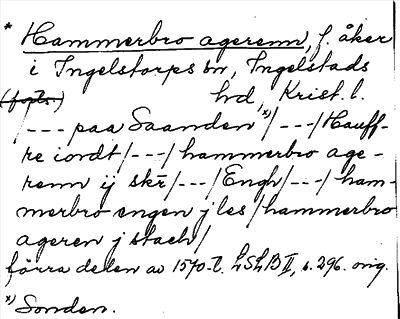 * Hammerbro agerenn, f. åker
i Ingelstorps sn, Ingelstads
(forts.) hd, Krist. l.
/--- paa Saanden x)/---/Hauff-
re iordt/---/hammerbro age-
renn ij skr̄/---/Engh/---/ham-
merbro engen j les/hammerbro
ageren j stach/
förra delen av 1570-t. LSLB II, s. 296. orig.
x) Sonden.